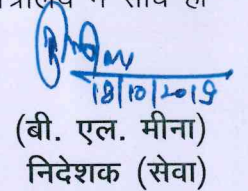 में साथ ही
18/10/2019
(बी. एल. मीना)
निदेशक (सेवा)